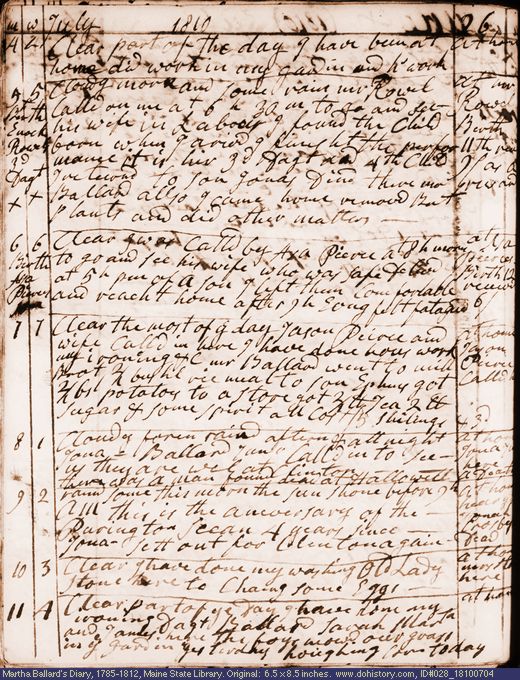 m w July 1810 6
4 4 Clear part of the day I have been at at home
home did work in my gardin and h work
5 5 Cloudy morn and some rain mr Rowel at mr
Birth Calld on me at 6 h 30 m to go and see Rowels
Enock his wife in Labour I found the Child Birth
Rowels born when I arivd I finisht the perfor 11th
3d mance it is her 3d Dagt and 4th Child
Dagt I returnd to son Jonas Dind there mr
X X Ballard also I came home removd
Plants and did other matters —
6 6 Clear I was Calld by Asa Pierce at 8 h morn at
Birth to go and see his wife who was safe Pierces
Asa at 5 h pm of a son I left them Comfortable Birth 12
Pierces and reacht home after 9 h Evng felt fatagud 6
7 1 Clear the most of ye day Jason Peirce and at home
wife Calld in here I have done hous work Jason
my ironing &C mr Ballard went to mill Peirce
bot 1/2 bushl rice meal to son Ephms got Calld
bsh potatos to a store got Tea 2 lb
Sugar & some spirit all Cost shilings
8 1 Cloudy foren raind aftern & all night at home
Jona Ballard Junr Calld in to see
us they are well at
there was a man found dead at Hallowell a Death
9 2 rain some this morn the sun shone before 9 h at home
AM this is the aniversary of the
Purington Scean 4 years since —
Jona Sett out for again dead
10 3 Clear I have done my washing Old Lady at home
Stone here to Chaing some Eggs — here
11 4 Clear part of ye day I have done my at home
ironing Dagt Ballard Sarah
and James here the boys mowd over grass
in ye gardin yesterday houghing Corn today
Martha Ballard's Diary, 1785-1812, Maine State Library. Original: 6.5 x 8.5 inches. www.dohistory.com, ID#028_18100704